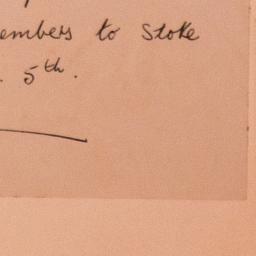 embers to Stoke
. 5th.